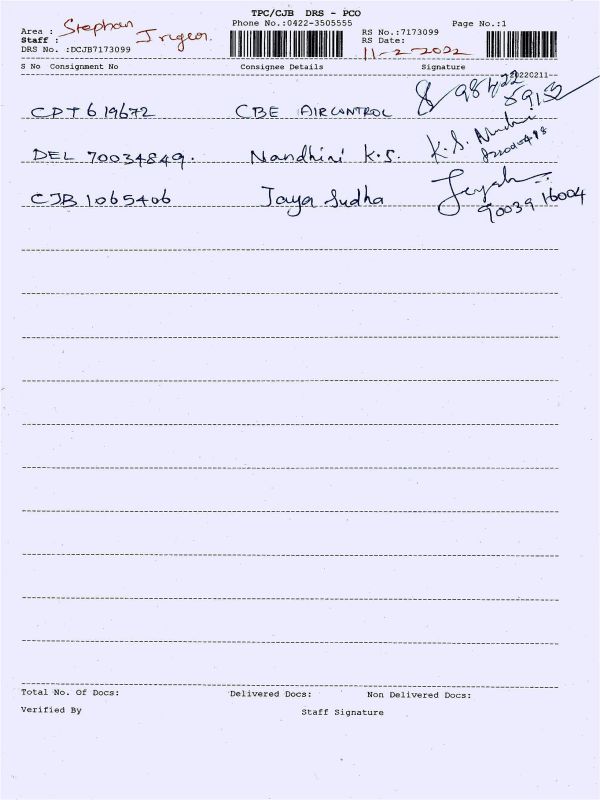 TPC/CJB DRS - PCO
Phone No.:0422-3505555 Page No.:1
Area : Stephan
Staff :
RS No.:7173099
DRS No. :DCJB7173099
RS Date: 11-2-2022
S No Consignment No Consignee Details Signature
CPT 619672 CBE AIRCONTROL
DEL 70034849. Nandhini K.S. K.S.
CJB 1065406 Jaya Sudha
90039 16004
Total No. Of Docs: Delivered Docs: Non Delivered Docs:
Verified By Staff Signature